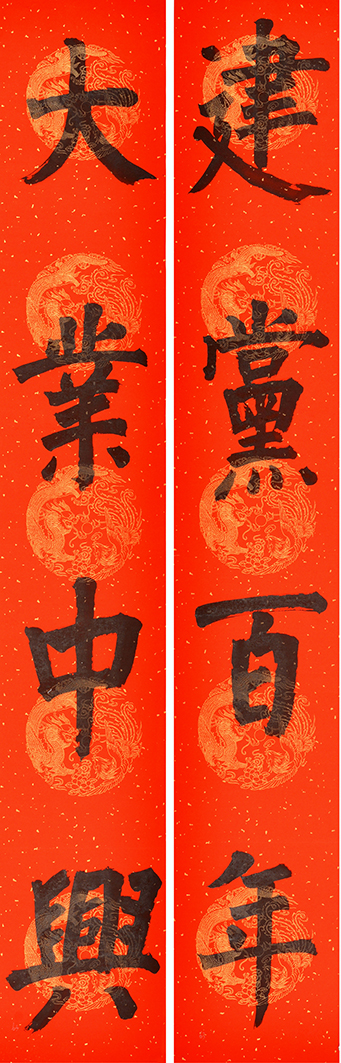 建黨百年
大業中興